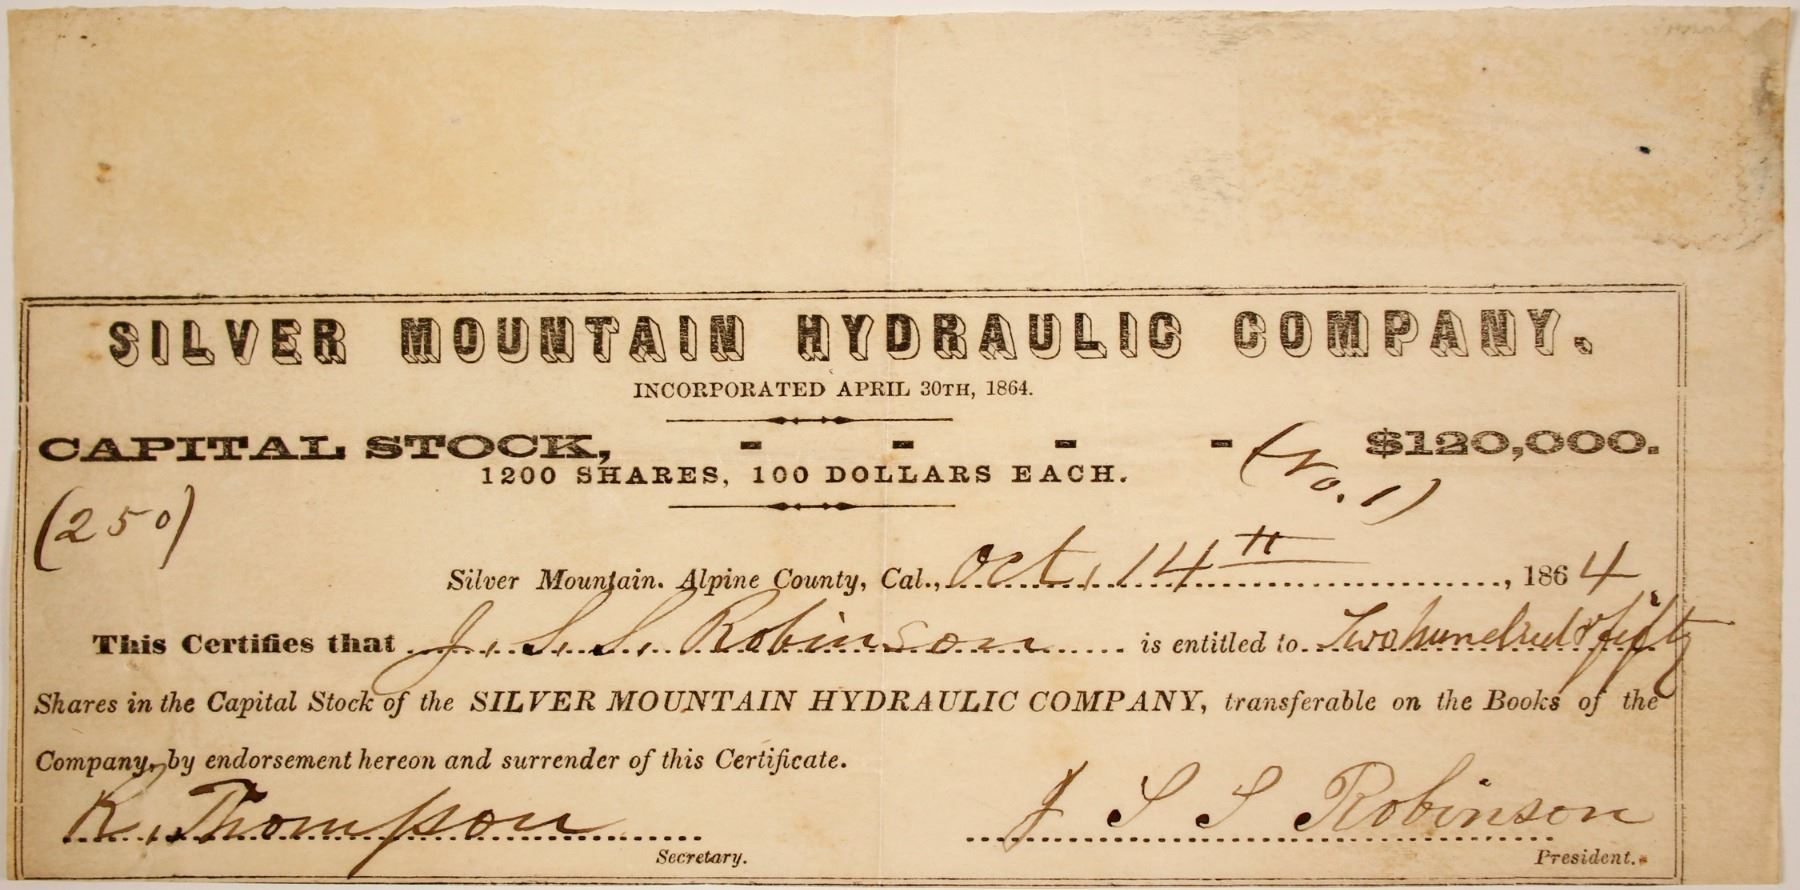 SILVER MOUNTAIN HYDRAULIC COMPANY.
INCORPORATED APRIL 30TH, 1864.
CAPITAL STOCK, - - - - $120,000.
1200 SHARES, 100 DOLLARS EACH.
(No. 1)
(250)
Silver Mountain. Alpine County, Cal., Oct, 14th, 1864
This Certifies that J. S. S. Robinson is entitled to Two hundred & fifty
Shares in the Capital Stock of the SILVER MOUNTAIN HYDRAULIC COMPANY, transferable on the Books of the
Company, by endorsement hereon and surrender of this Certificate.
R. Thompson J S S Robinson
Secretary. President.